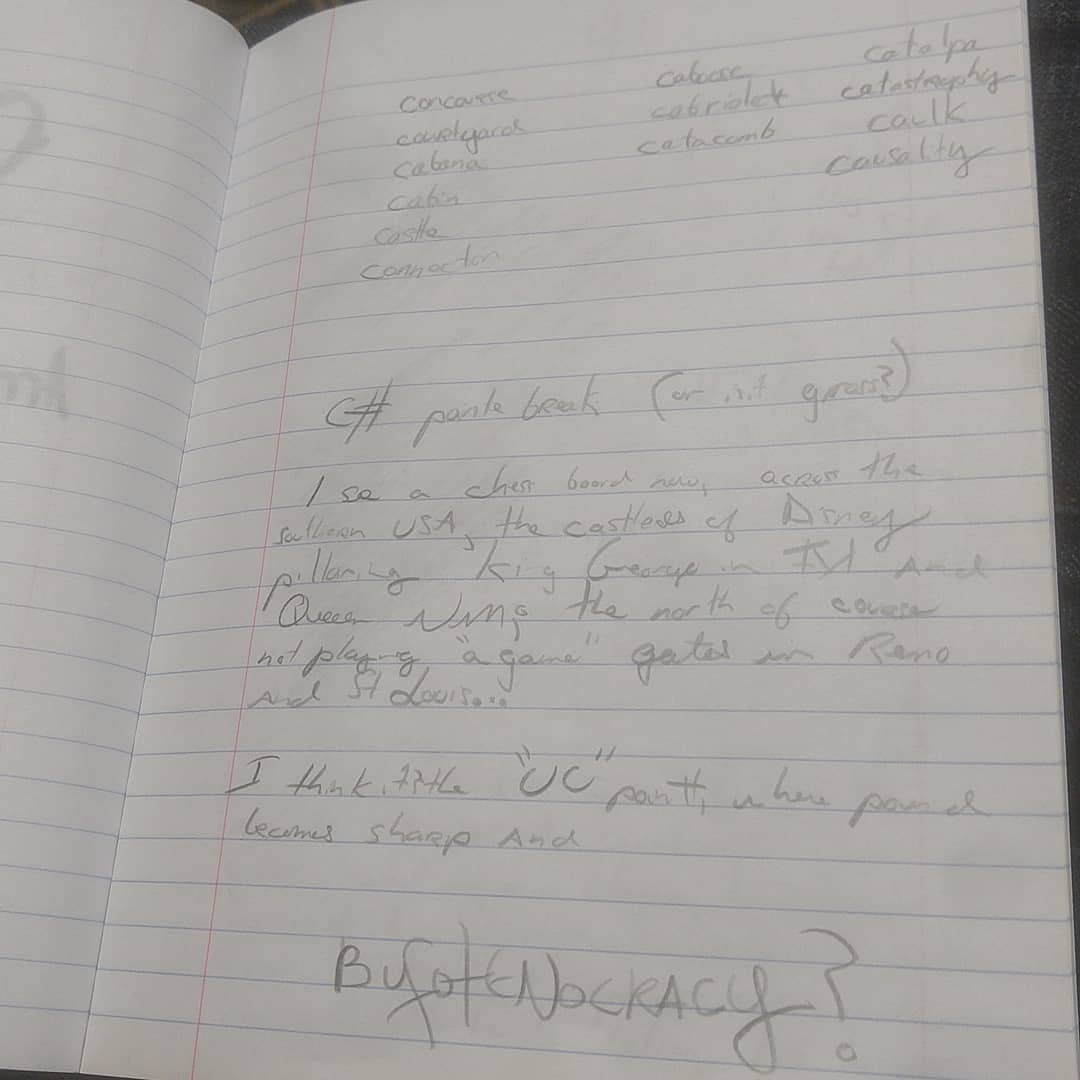 concourse caboose catalpa
courtyard cabriolet catastrophy
cabana catacomb caulk
cabin causalty
castle
connection
C# break (or is it
I se a chess board now, across the
southern USA, the castles of Disney
pillaring King George in And
Queen the north of course
not playing "a game" gates in Reno
And St Louis...
I think it the "UC" where pound
becomes sharp And
BYotENOCKRACY?